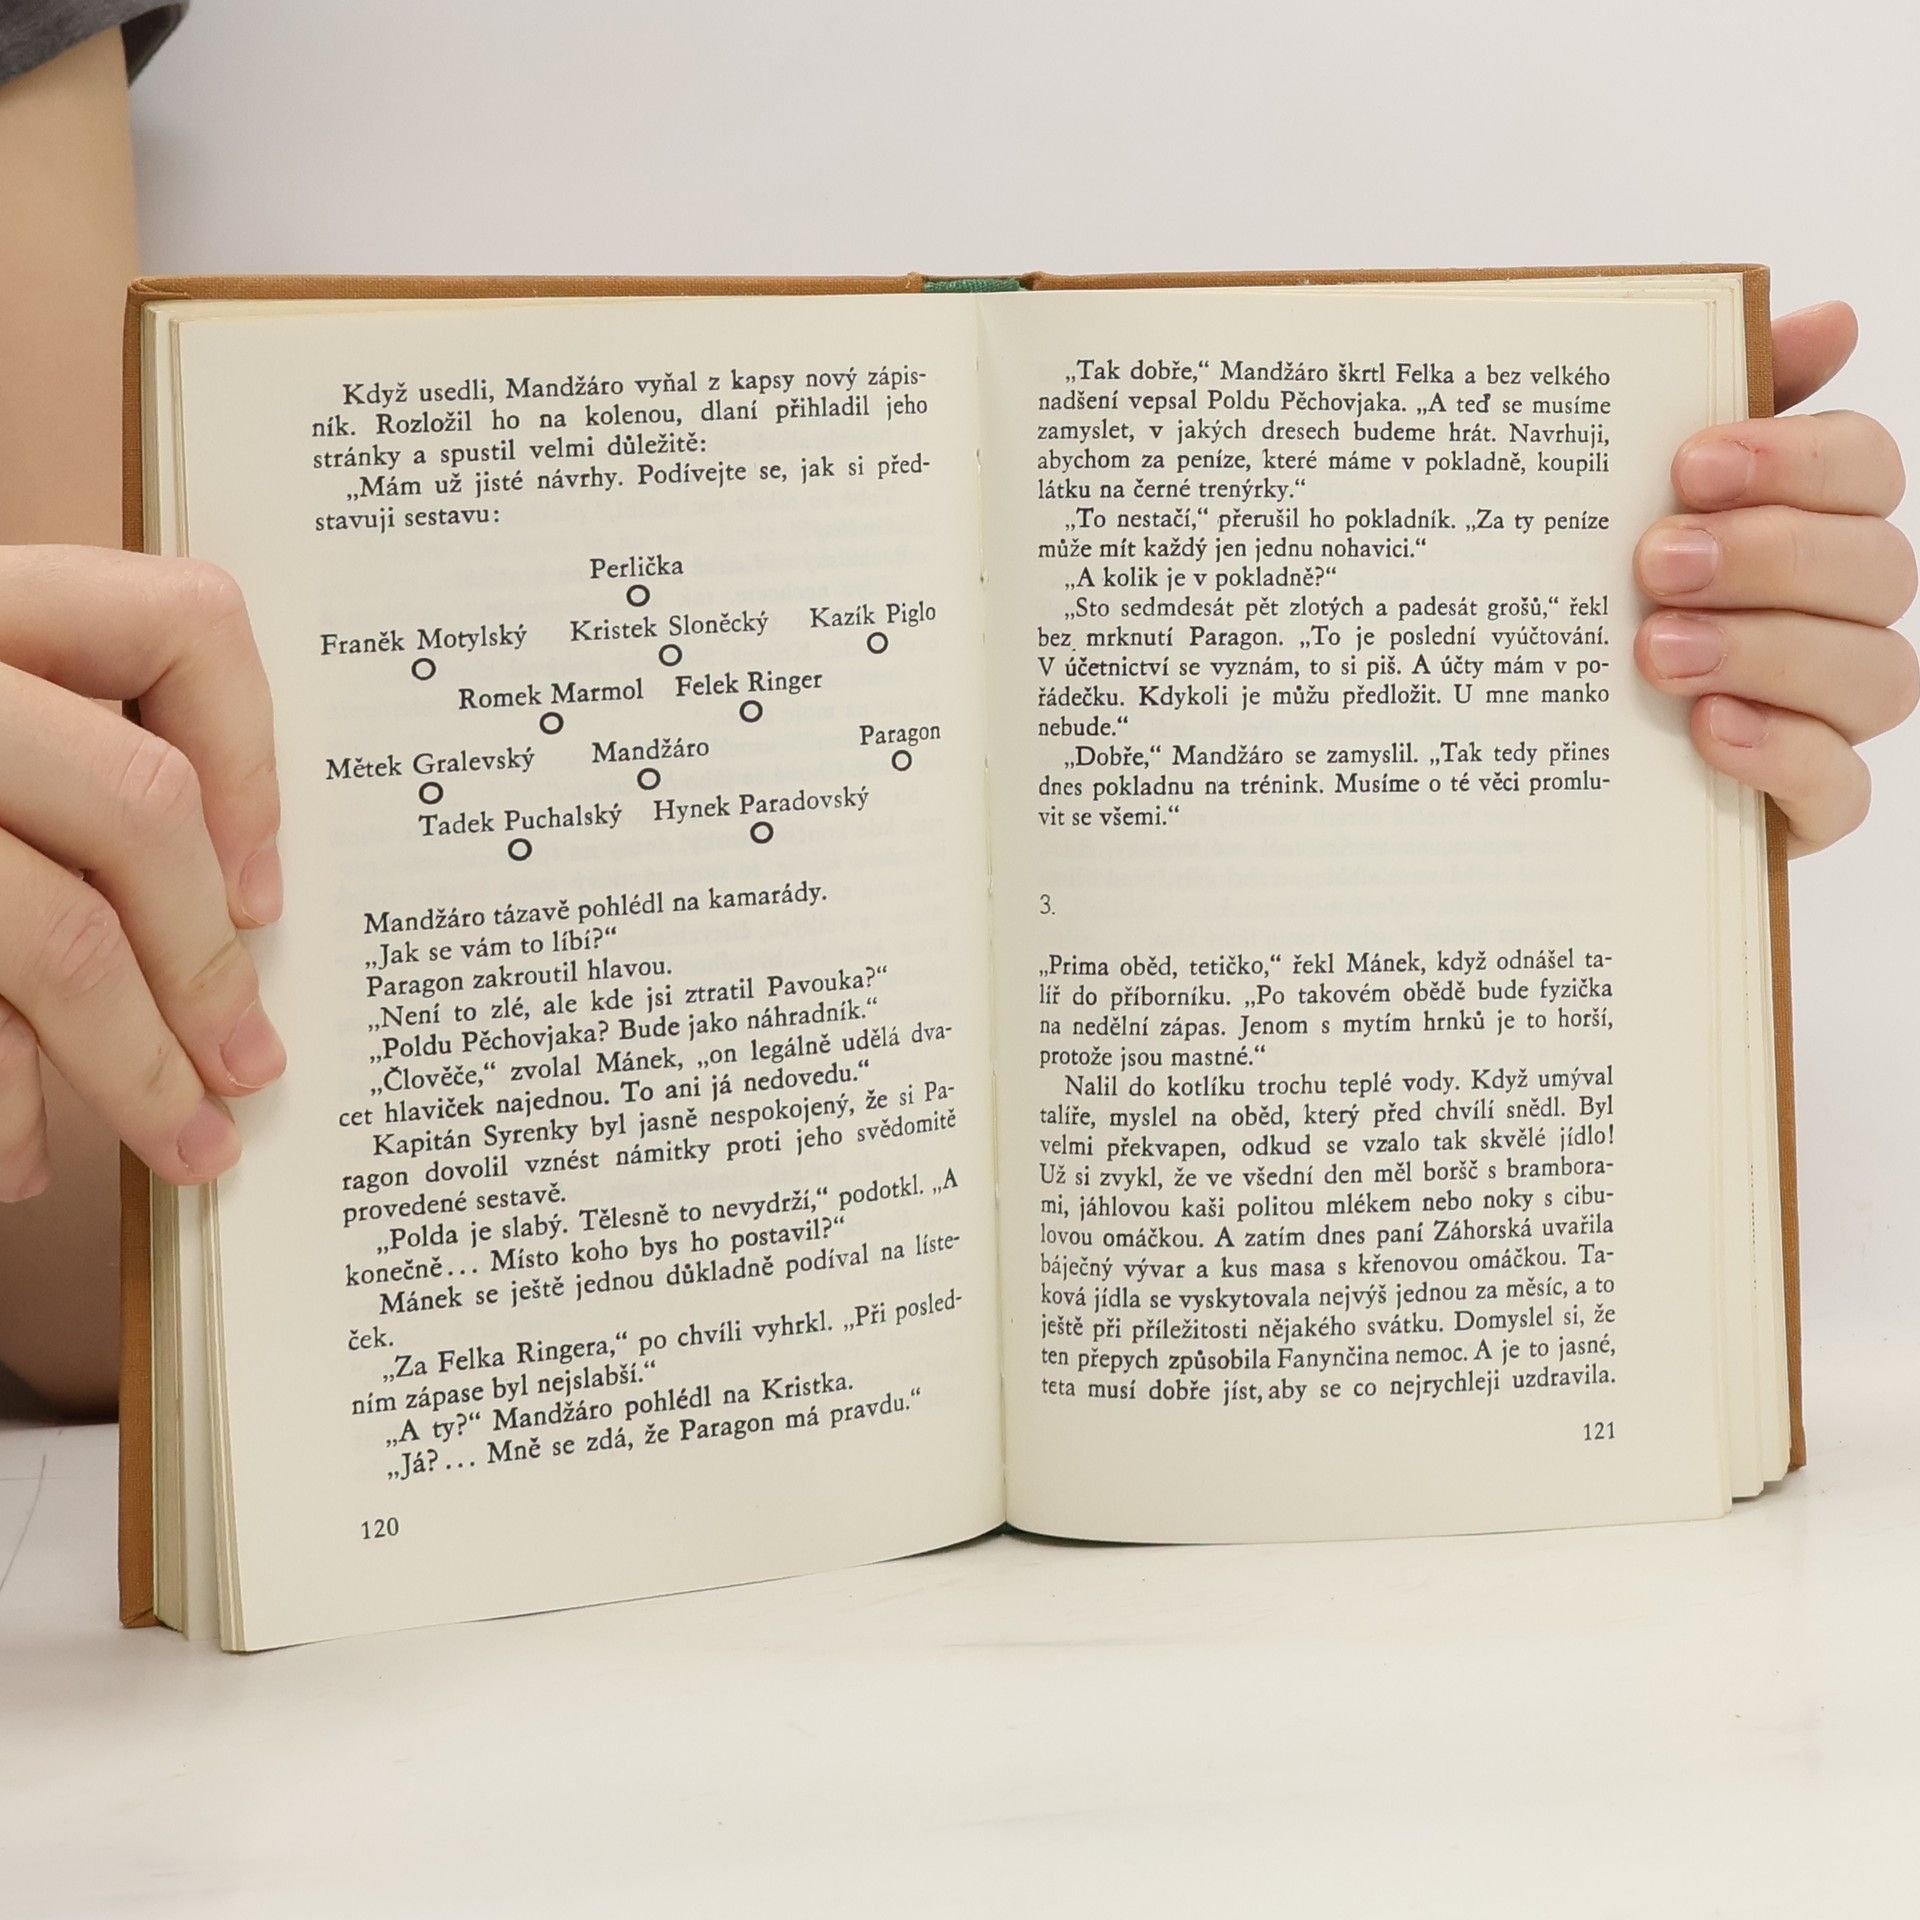 Když usedli, Mandžáro vyňal z kapsy nový zápis-
ník. Rozložil ho na kolenou, dlaní přihladil jeho
stránky a spustil velmi důležitě:
„Mám už jisté návrhy. Podívejte se, jak si před-
stavuji sestavu:
Perlička
Franěk Motylský Kristek Sloněcký Kazík Piglo
Romek Marmol Felek Ringer
Mětek Gralevský Mandžáro Paragon
Tadek Puchalský Hynek Paradovský
Mandžáro tázavě pohlédl na kamarády.
„Jak se vám to líbí?“
Paragon zakroutil hlavou.
„Není to zlé, ale kde jsi ztratil Pavouka?“
„Poldu Pěchovjaka? Bude jako náhradník.“
„Člověče,“ zvolal Mánek, „on legálně udělá dva-
cet hlaviček najednou. To ani já nedovedu.“
Kapitán Syrenky byl jasně nespokojený, že si Pa-
ragon dovolil vznést námitky proti jeho svědomitě
provedené sestavě.
„Polda je slabý. Tělesně to nevydrží,“ podotkl. „A
konečně... Místo koho bys ho postavil?“
Mánek se ještě jednou důkladně podíval na líste-
ček.
„Za Felka Ringera,“ po chvíli vyhrkl. „Při posled-
ním zápase byl nejslabší.“
„A ty?“ Mandžáro pohlédl na Kristka.
„Já?... Mně se zdá, že Paragon má pravdu.“
120
„Tak dobře,“ Mandžáro škrtl Felka a bez velkého
nadšení vepsal Poldu Pěchovjaka. „A teď se musíme
zamyslet, v jakých dresech budeme hrát. Navrhuji,
abychom za peníze, které máme v pokladně, koupili
látku na černé trenýrky.“
„To nestačí,“ přerušil ho pokladník. „Za ty peníze
může mít každý jen jednu nohavici.“
„A kolik je v pokladně?“
„Sto sedmdesát pět zlotých a padesát grošů,“ řekl
bez mrknutí Paragon. „To je poslední vyúčtování.
V účetnictví se vyznám, to si piš. A účty mám v po-
řádečku. Kdykoli je můžu předložit. U mne manko
nebude.“
„Dobře,“ Mandžáro se zamyslil. „Tak tedy přines
dnes pokladnu na trénink. Musíme o té věci promlu-
vit se všemi.“
3.
„Prima oběd, tetičko,“ řekl Mánek, když odnášel ta-
líř do příborníku. „Po takovém obědě bude fyzička
na nedělní zápas. Jenom s mytím hrnků je to horší,
protože jsou mastné.“
Nalil do kotlíku trochu teplé vody. Když umýval
talíře, myslel na oběd, který před chvílí snědl. Byl
velmi překvapen, odkud se vzalo tak skvělé jídlo!
Už si zvykl, že ve všední den měl boršč s brambora-
mi, jáhlovou kaši politou mlékem nebo noky s cibu-
lovou omáčkou. A zatím dnes paní Záhorská uvařila
báječný vývar a kus masa s křenovou omáčkou. Ta-
ková jídla se vyskytovala nejvýš jednou za měsíc, a to
ještě při příležitosti nějakého svátku. Domyslel si, že
ten přepych způsobila Fanynčina nemoc. A je to jasné,
teta musí dobře jíst, aby se co nejrychleji uzdravila.
121